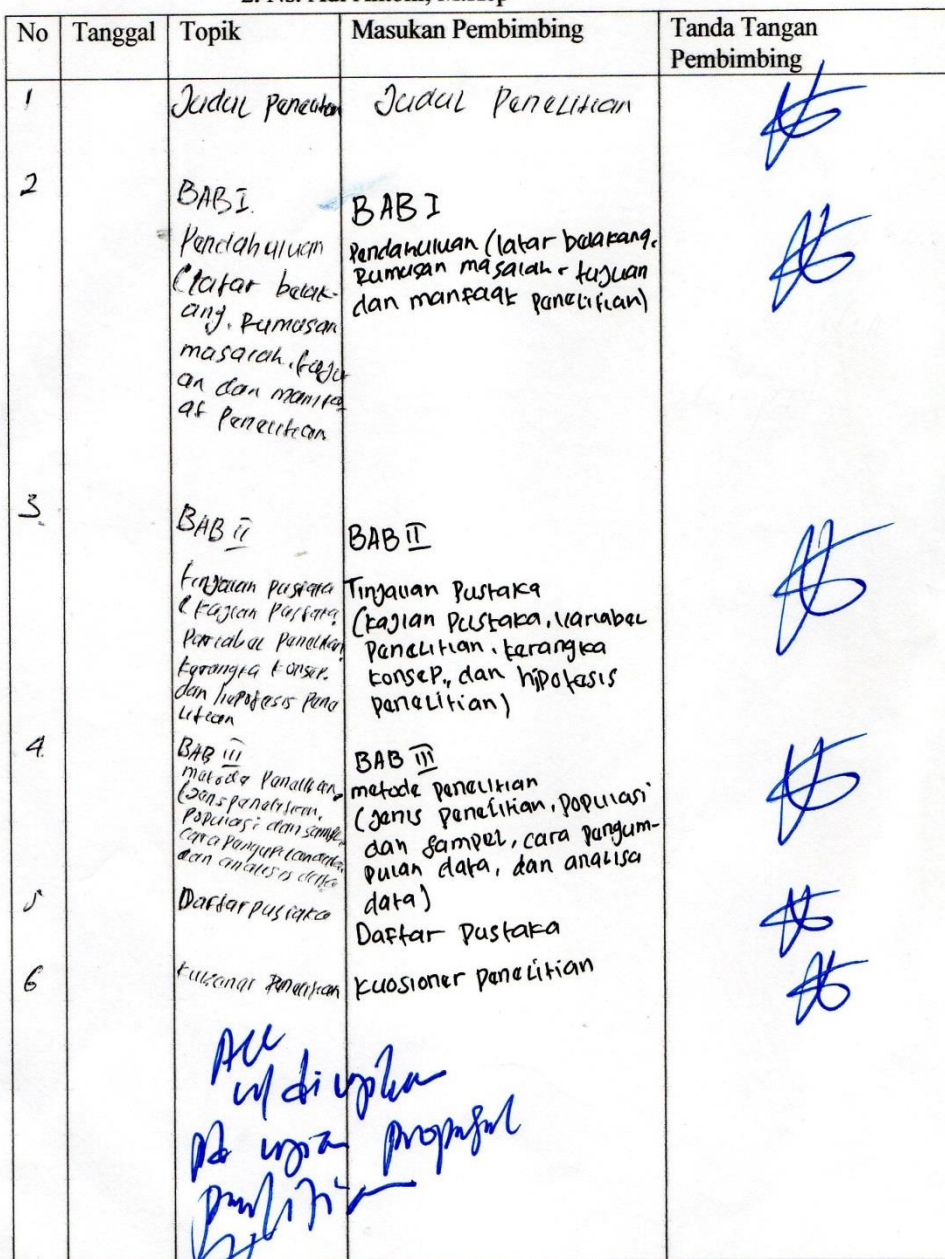 No Tanggal Topik Masukan Pembimbing Tanda Tangan
Pembimbing
1 Judul Penelitian Judul Penelitian
2 BAB I. BAB I
Pendahuluan
(latar belak-
ang, Rumusan
masalah, tuju
an dan manfa
at Penelitian
Pendahuluan (latar belakang,
Rumusan masalah, tujuan
dan manfaat penelitian)
3. BAB II BAB II
tinjauan pustaka
(kajian pustaka,
Variabel Penelitian,
kerangka konsep.
dan hipotesis Pene
litian
Tinjauan Pustaka
(kajian Pustaka, Variabel
Penelitian, kerangka
konsep, dan hipotesis
penelitian)
4. BAB III BAB III
metode Penelitian,
(Jenis penelitian,
populasi dan sampel
cara pengumpulan data
dan analisis data
metode penelitian
(Jenis penelitian, populasi
dan sampel, cara pengum-
pulan data, dan analisa
data)
5 Daftar pustaka Daftar Pustaka
6 Penelitian Kuosioner Penelitian
ACC
di ujikan
ujian proposal
penelitian